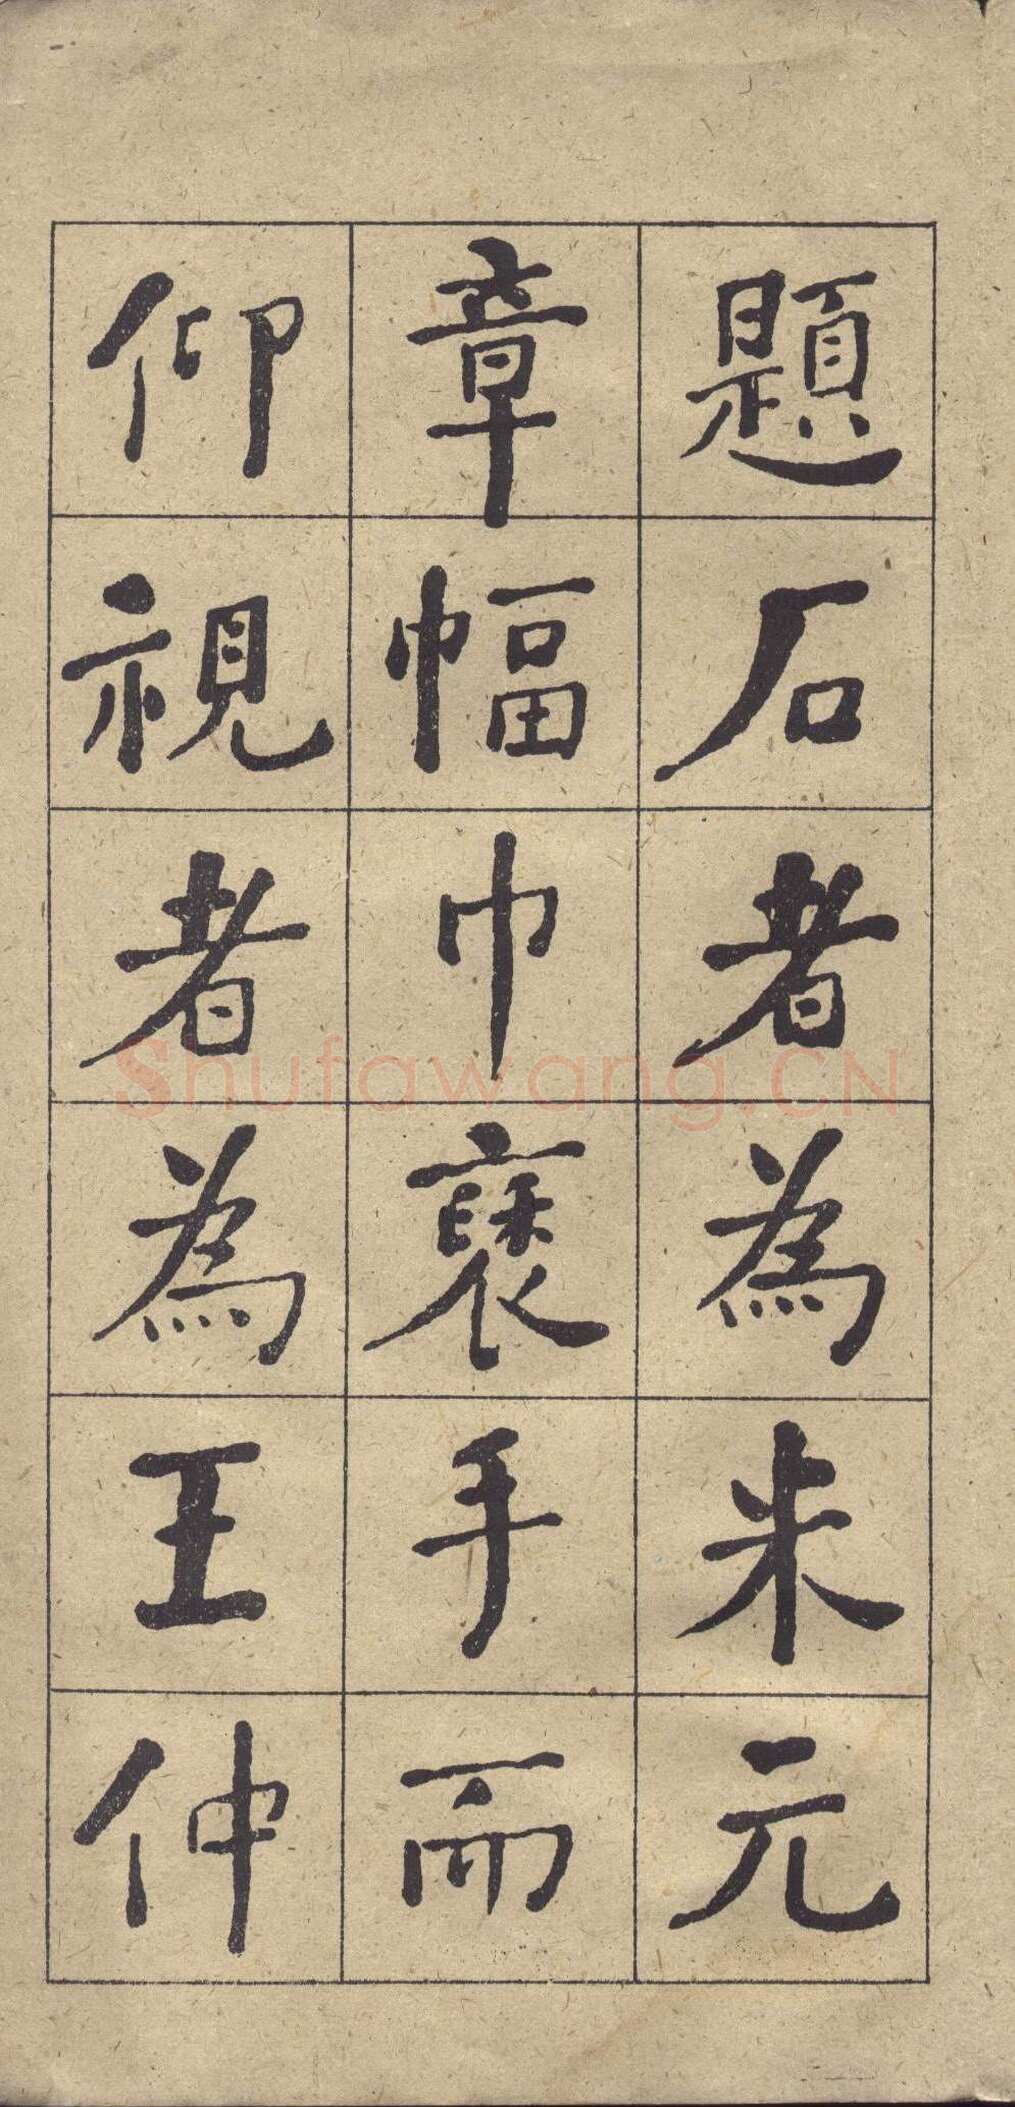 題石者為米元
章幅巾褎手而
仰視者為王仲
Shufawang.CN